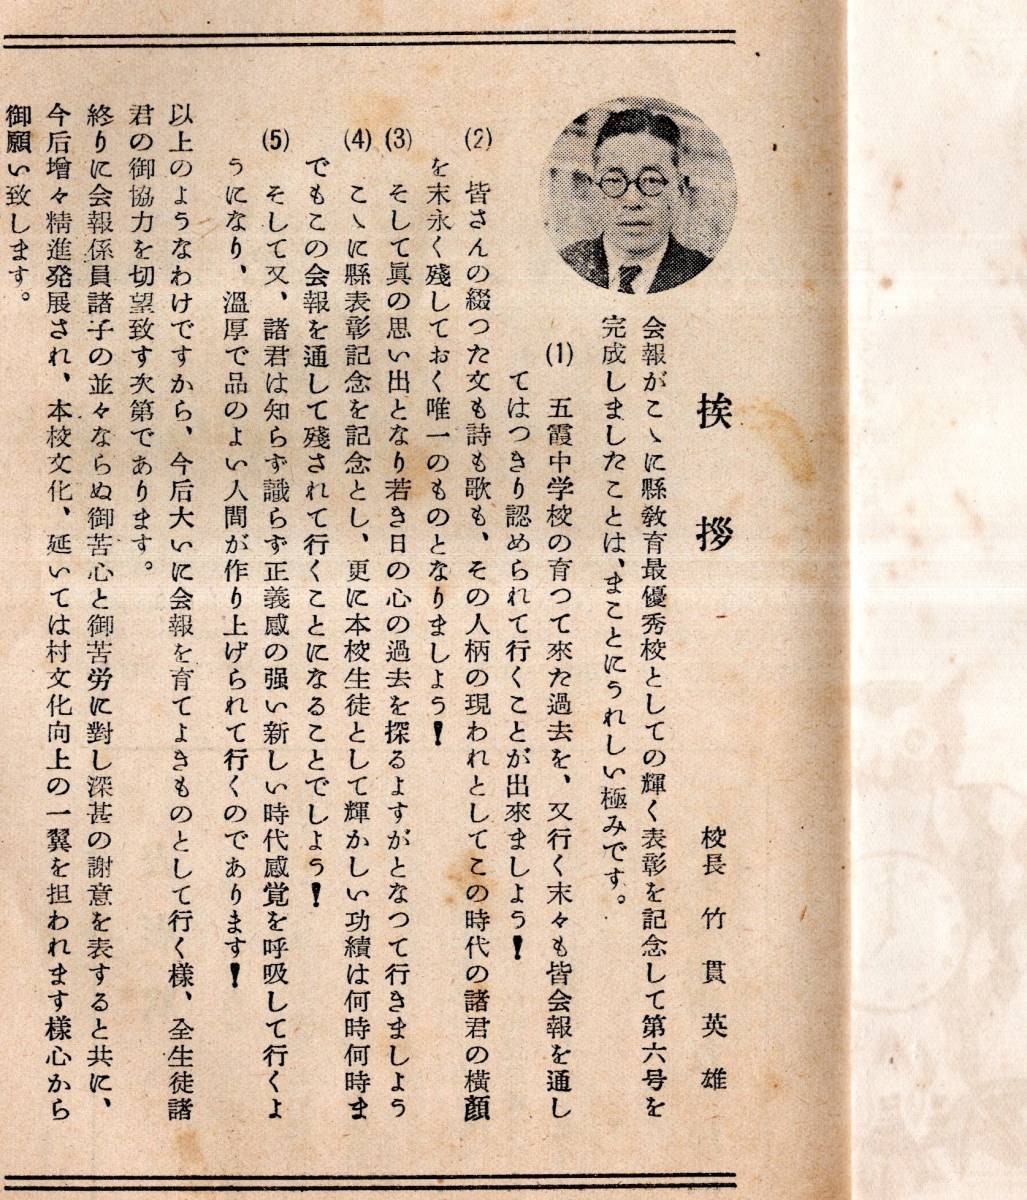 挨拶
校長 竹貫英雄
会報がこゝに縣教育最優秀校としての輝く表彰を記念して第六号を
完成しましたことは、まことにうれしい極みです。
(1) 五霞中学校の育つて來た過去を、又行く末々も皆会報を通し
てはつきり認められて行くことが出來ましよう!
(2) 皆さんの綴つた文も詩も歌も、その人柄の現われとしてこの時代の諸君の横顔
を末永く残しておく唯一のものとなりましよう!
(3) そして眞の思い出となり若き日の心の過去を探るよすがとなつて行きましよう
(4) こゝに縣表彰記念を記念とし、更に本校生徒として輝かしい功績は何時何時ま
でもこの会報を通して残されて行くことになることでしよう!
(5) そして又、諸君は知らず識らず正義感の强い新しい時代感覚を呼吸して行くよ
うになり、溫厚で品のよい人間が作り上げられて行くのであります!
以上のようなわけですから、今后大いに会報を育てよきものとして行く様、全生徒諸
君の御協力を切望致す次第であります。
終りに会報係員諸子の並々ならぬ御苦心と御苦労に對し深甚の謝意を表すると共に、
今后增々精進発展され、本校文化、延いては村文化向上の一翼を担われます様心から
御願い致します。